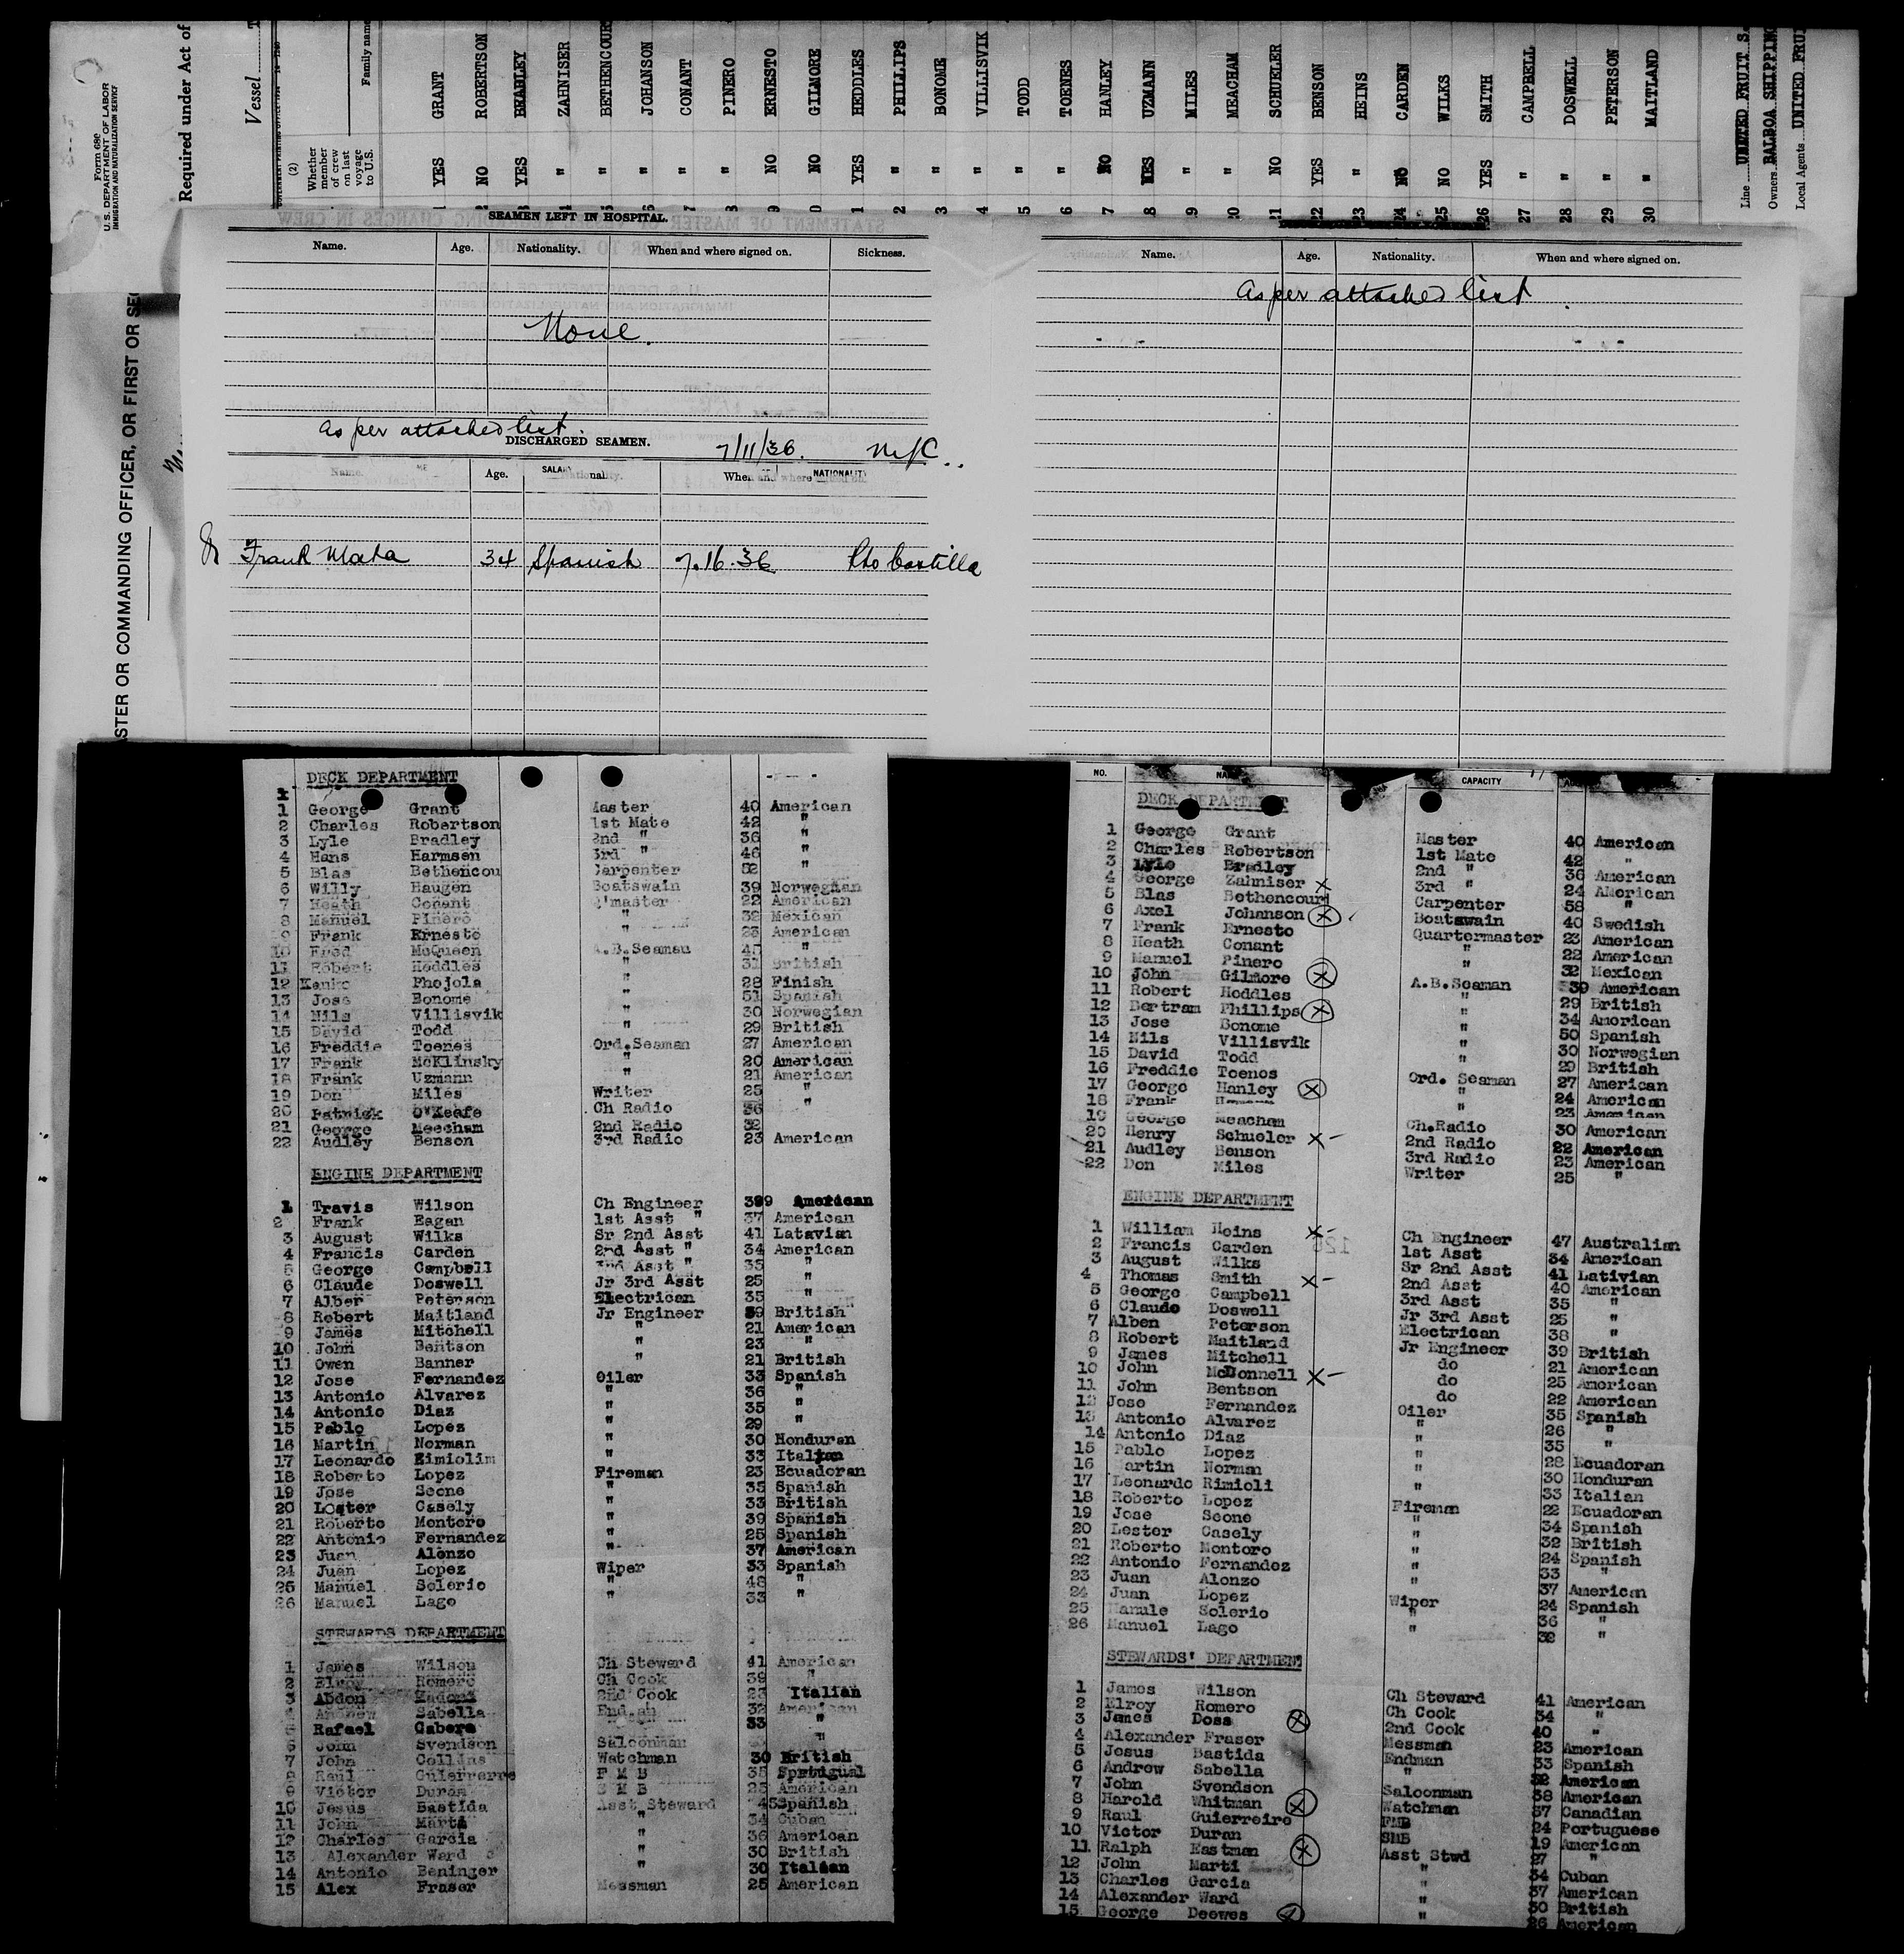 Form 689
U.S. DEPARTMENT OF LABOR
IMMIGRATION AND NATURALIZATION SERVICE
Required under Act of
Vessel
(2)
Whether member of crew on last voyage to U.S.
Family name
1 YES GRANT
2 NO ROBERTSON
3 YES BRADLEY
4 " ZAHNISER
5 " BETHENCOUR
6 " JOHANSON
7 " CONANT
8 " PINERO
9 NO ERNESTO
0 NO GILMORE
1 YES HEDDLES
2 " PHILLIPS
3 " BONOME
4 " VILLISVIK
5 " TODD
6 " TOENES
7 NO HANLEY
8 YES UZMANN
9 " MILES
20 " MEACHAM
21 NO SCHUELER
22 YES BENSON
23 " HEINS
24 NO CARDEN
25 NO WILKS
26 YES SMITH
27 " CAMPBELL
28 " DOSWELL
29 " PETERSON
30 " MAITLAND
Line UNITED FRUIT S.
Owners BALBOA SHIPPING
Local Agents UNITED FRU
ASTER OR COMMANDING OFFICER, OR FIRST OR SEC
SEAMEN LEFT IN HOSPITAL.
Name. Age. Nationality. When and where signed on. Sickness.
None.
as per attached list.
DISCHARGED SEAMEN.
7/11/36.
Name. Age. Nationality. When and where
SALARY NATIONALITY
Frank Mata 34 Spanish 7.16.36 Pto Castilla
Name. Age. Nationality. When and where signed on.
As per attached list
DECK DEPARTMENT
1 George Grant Master 40 American
2 Charles Robertson 1st Mate 42 "
3 Lyle Bradley 2nd " 36 "
4 Hans Harmsen 3rd " 46 "
5 Blas Bethencou Carpenter 52 "
6 Willy Haugen Boatswain 39 Norwegian
7 Heath Conant Q'master 22 American
8 Manuel Pinero " 32 Mexican
9 Frank Ernesto " 23 American
10 Fred McQueen A.B.Seaman 45 "
11 Robert Heddles " 31 British
12 Phojola " 28 Finish
13 Jose Bonome " 51 Spanish
14 Nils Villisvik " 30 Norwegian
15 David Todd " 29 British
16 Freddie Toenes Ord.Seaman 27 American
17 Frank McKlinsky " 20 American
18 Frank Uzmann " 21 American
19 Don Miles Writer 25 "
20 Patrick O'Keafe Ch Radio 36 "
21 George Meecham 2nd Radio 32
22 Audley Benson 3rd Radio 23 American
ENGINE DEPARTMENT
1 Travis Wilson Ch Engineer 39 American
2 Frank Eagan 1st Asst " 37 American
3 August Wilks Sr 2nd Asst 41 Latavian
4 Francis Carden 2nd Asst " 34 American
5 George Campbell 3nd Asst " 35 "
6 Claude Doswell Jr 3rd Asst 25 "
7 Alber Peterson Electrican 35 "
8 Robert Maitland Jr Engineer 39 British
9 James Mitchell " 21 American
10 John Bentson " 23 "
11 Owen Banner " 21 British
12 Jose Fernandez Oiler 33 Spanish
13 Antonio Alvarez " 36 "
14 Antonio Diaz " 35 "
15 Pablo Lopez " 29 "
16 Martin Norman " 30 Honduran
17 Leonardo Rimiolim " 33 Italian
18 Roberto Lopez Fireman 23 Ecuadoran
19 Jose Seone " 35 Spanish
20 Lester Casely " 33 British
21 Roberto Montoro " 39 Spanish
22 Antonio Fernandez " 25 Spanish
23 Juan Alonzo " 37 American
24 Juan Lopez Wiper 33 Spanish
25 Manuel Solerio " 48 "
26 Manuel Lago " 33 "
STEWARDS DEPARTMENT
1 James Wilson Ch Steward 41 American
2 Elroy Romero Ch Cook 39 "
3 Abdon 2nd Cook 23 Italian
4 Andrew Sabella 32 American
5 Rafael Cabera 33 "
6 John Svendson Saloonman "
7 John Collins Watchman 30 British
8 Raul Guierrerre P M B 35
9 Victor Duran S M B 25 American
10 Jesus Bastida Asst Steward 45 Spanish
11 John Marti " 34 Cuban
12 Charles Garcia " 36 American
13 Alexander Ward " 30 British
14 Antonio Beninger " 30 Italian
15 Alex Fraser Messman 25 American
NO. CAPACITY
DECK DEPARTMENT
1 George Grant Master 40 American
2 Charles Robertson 1st Mate 42 "
3 Lyle Bradley 2nd " 36 American
4 George Zahniser x 3rd " 24 American
5 Blas Bethencourt Carpenter 58 "
6 Axel Johanson x Boatswain 40 Swedish
7 Frank Ernesto Quartermaster 23 American
8 Heath Conant " 22 American
9 Manuel Pinero " 32 Mexican
10 John Gilmore x A.B.Seaman 39 American
11 Robert Heddles " 29 British
12 Bertram Phillips x " 34 American
13 Jose Bonome " 50 Spanish
14 Nils Villisvik " 30 Norwegian
15 David Todd " 29 British
16 Freddie Toenes Ord. Seaman 27 American
17 George Hanley x " 24 American
18 Frank " 23 American
19 George Meacham Ch.Radio 30 American
20 Henry Schueler x 2nd Radio 22 American
21 Audley Benson 3rd Radio 23 American
22 Don Miles Writer 25 "
ENGINE DEPARTMENT
1 William Heins x Ch Engineer 47 Australian
2 Francis Carden 1st Asst 34 American
3 August Wilks Sr 2nd Asst 41 Lativian
4 Thomas Smith x 2nd Asst 40 American
5 George Campbell 3rd Asst 35 "
6 Claude Doswell Jr 3rd Asst 25 "
7 Alben Peterson Electrican 38 "
8 Robert Maitland Jr Engineer 39 British
9 James Mitchell do 21 American
10 John McDonnell x do 25 American
11 John Bentson do 22 American
12 Jose Fernandez Oiler 35 Spanish
13 Antonio Alvarez " 26 "
14 Antonio Diaz " 35 "
15 Pablo Lopez " 28 Ecuadoran
16 Martin Norman " 30 Honduran
17 Leonardo Rimioli " 33 Italian
18 Roberto Lopez Fireman 22 Ecuadoran
19 Jose Seone " 34 Spanish
20 Lester Casely " 32 British
21 Roberto Montoro " 24 Spanish
22 Antonio Fernandez " 33 "
23 Juan Alonzo " 37 American
24 Juan Lopez Wiper 24 Spanish
25 Manule Solerio " 36 "
26 Manuel Lago " 32 "
STEWARDS' DEPARTMENT
1 James Wilson Ch Steward 41 American
2 Elroy Romero Ch Cook 34 "
3 James Doss x 2nd Cook 40 "
4 Alexander Fraser Messman 23 American
5 Jesus Bastida Endman 33 Spanish
6 Andrew Sabella " 32 American
7 John Svendson Saloonman 38 American
8 Harold Whitman x Watchman 37 Canadian
9 Raul Guierreiro PMB 24 Portuguese
10 Victor Duran SMB 19 American
11 Ralph Eastman x Asst Stwd 27 "
12 John Marti " 34 Cuban
13 Charles Garcia " 37 American
14 Alexander Ward " 30 British
15 George Deewes x " 26 American